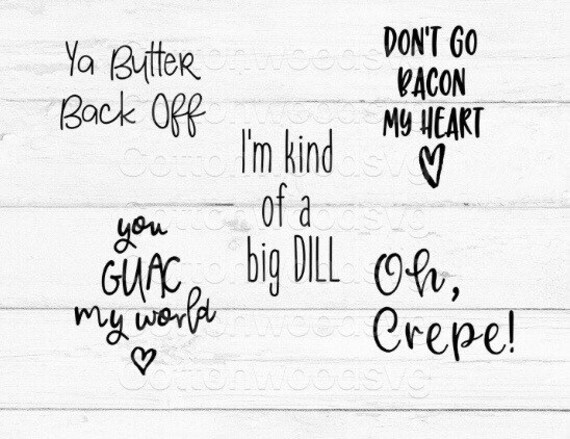 Ya Butter
Back Off
DON'T GO
BACON
MY HEART
I'm kind
of a
big DILL
you
GUAC
my world
Oh,
Crepe!
CottonwoodSVG
CottonwoodSVG
CottonwoodSVG
CottonwoodSVG
CottonwoodSVG